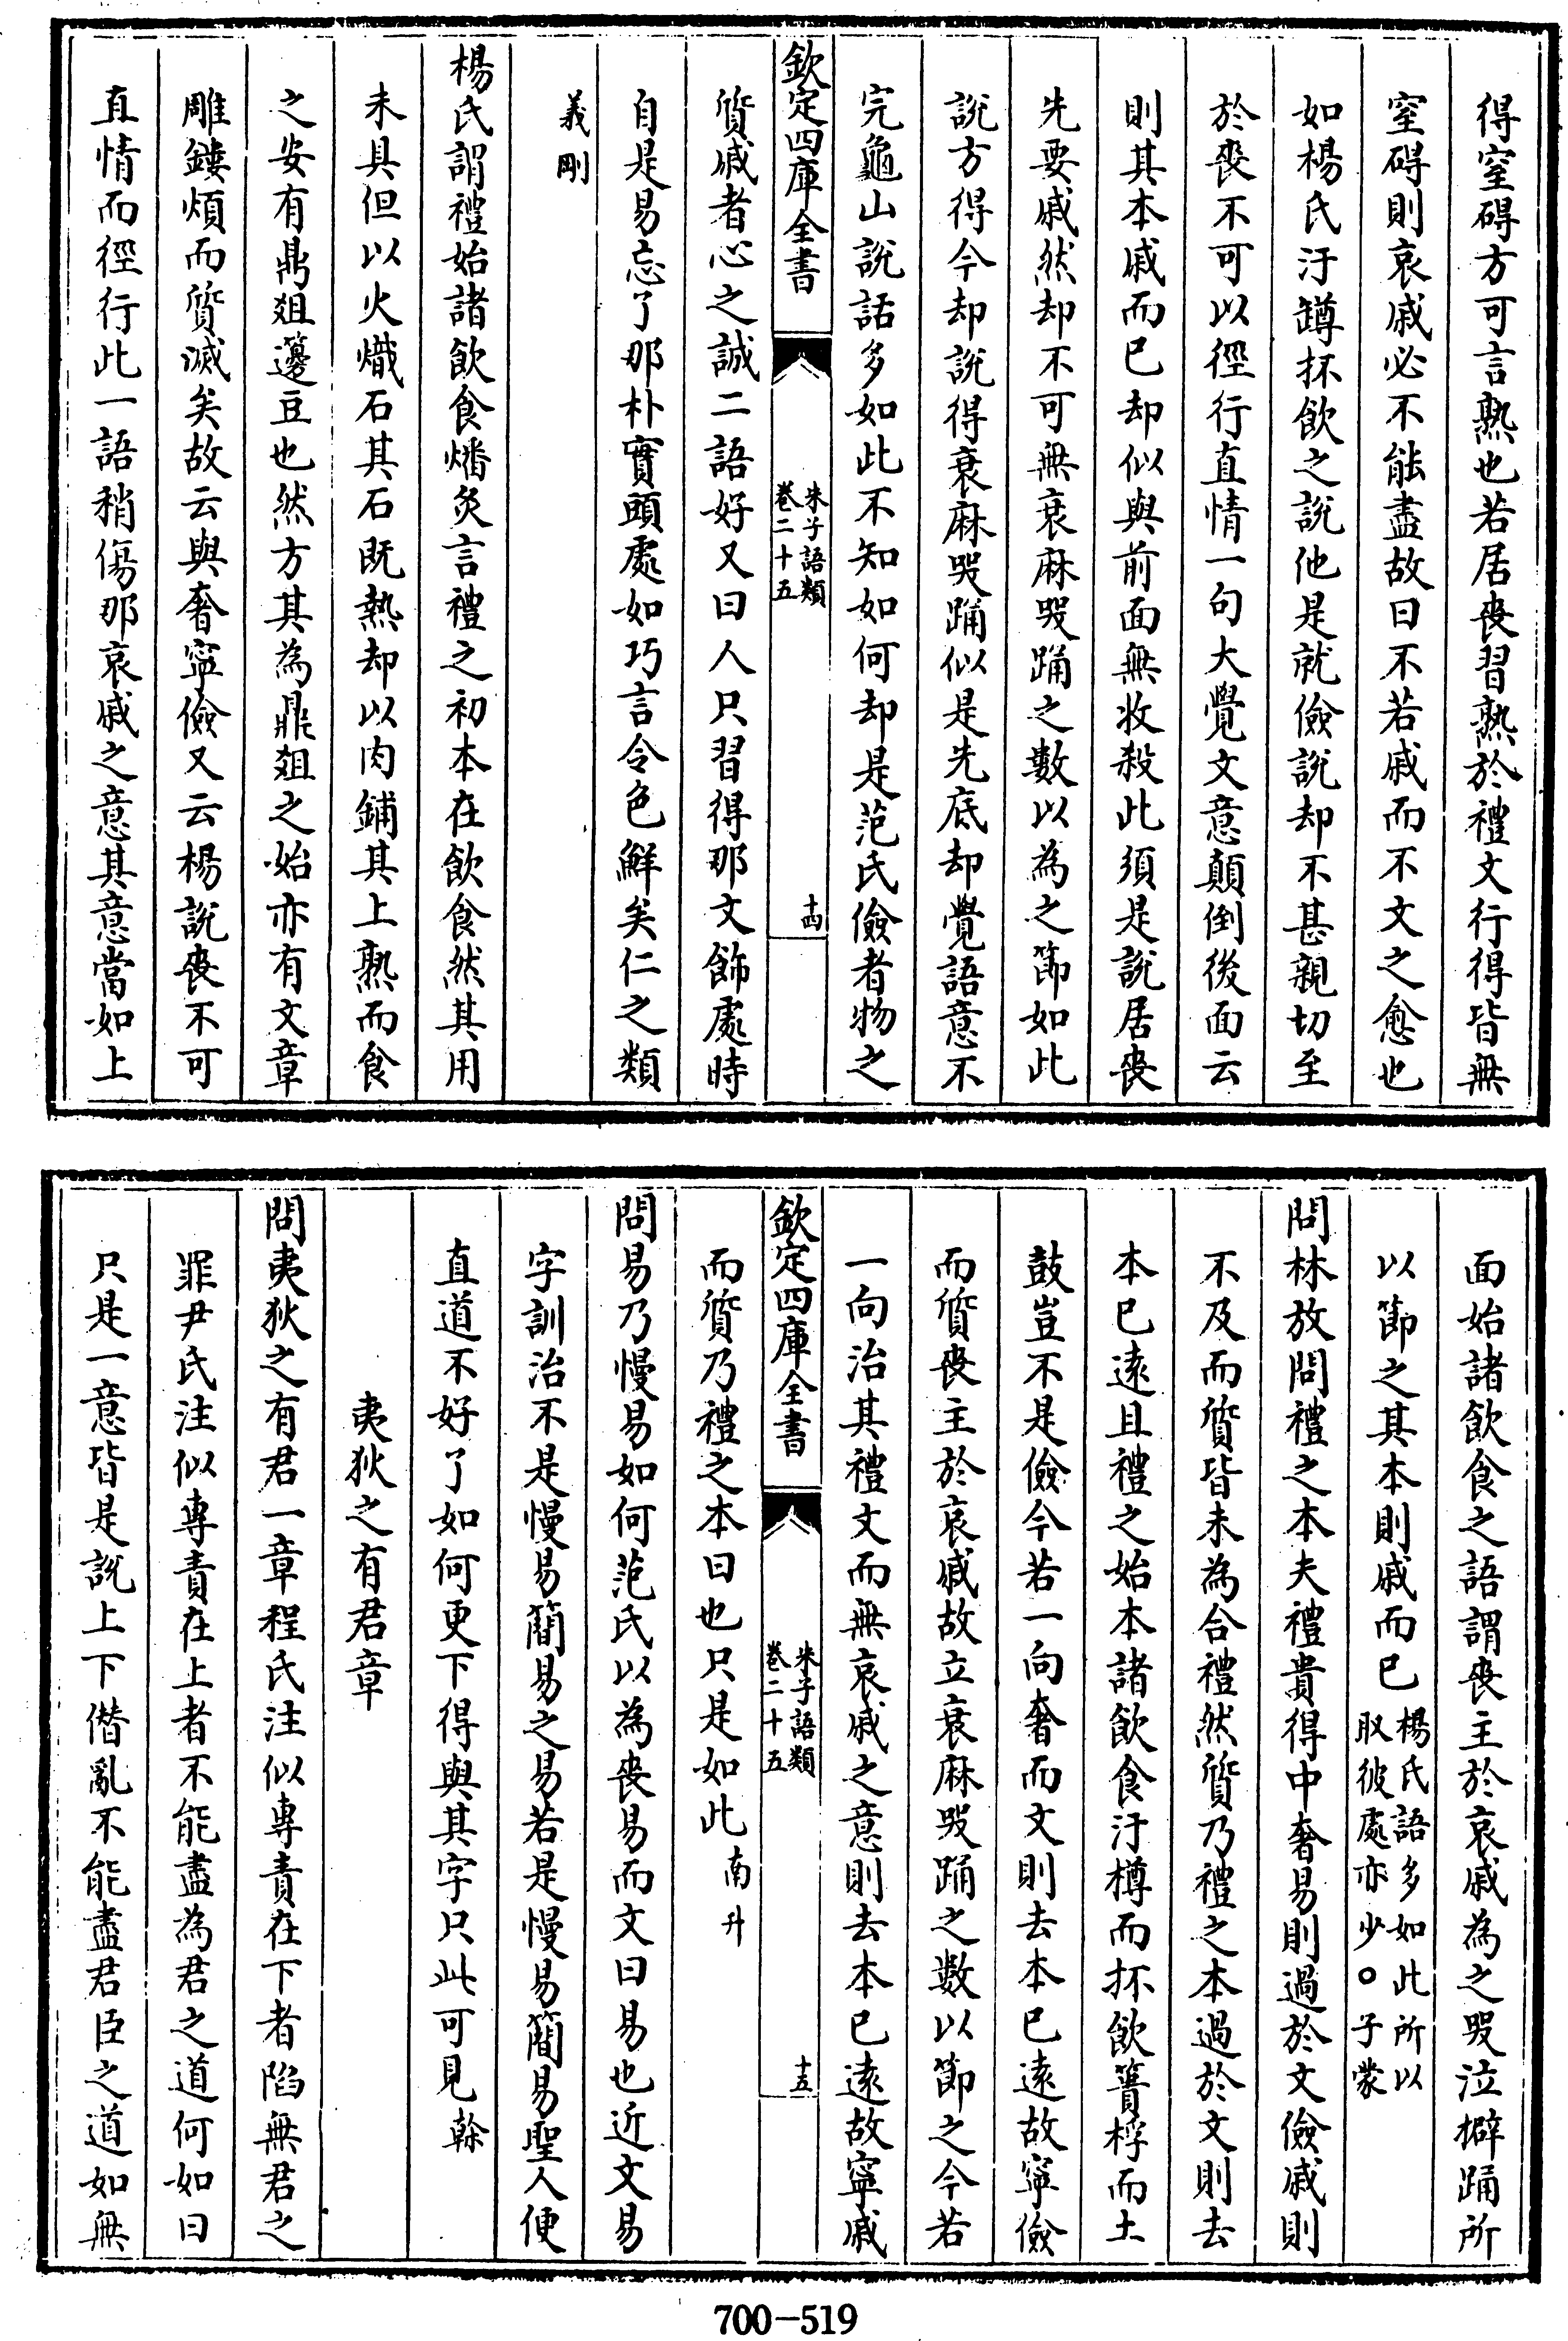 得窒碍方可言熟也若居喪習熟於禮文行得皆無
窒碍則哀戚必不能盡故曰不若戚而不文之愈也
如楊氏汙罇抔飲之說他是就儉說却不甚親切至
於喪不可以徑行直情一句大覺文意顛倒後面云
則其本戚而已却似與前面無收殺此須是說居喪
先要戚然却不可無衰麻哭踊之數以為之節如此
說方得今却說得衰麻哭踊似是先底却覺語意不
完龜山說話多如此不知如何却是范氏儉者物之
欽定四庫全書
朱子語類
卷二十五
十四
質戚者心之誠二語好又曰人只習得那文飾處時
自是易忘了那朴實頭處如巧言令色鮮矣仁之類
義剛
楊氏謂禮始諸飲食燔炙言禮之初本在飲食然其用
未具但以火熾石其石既熱却以肉鋪其上熟而食
之安有鼎爼籩豆也然方其為鼎爼之始亦有文章
雕鏤煩而質滅矣故云與奢寧儉又云楊說喪不可
直情而徑行此一語稍傷那哀戚之意其意當如上
面始諸飲食之語謂喪主於哀戚為之哭泣擗踊所
以節之其本則戚而已楊氏語多如此所以
取彼處亦少○子蒙
問林放問禮之本夫禮貴得中奢易則過於文儉戚則
不及而質皆未為合禮然質乃禮之本過於文則去
本已遠且禮之始本諸飲食汙樽而抔飲蕢桴而土
鼓豈不是儉今若一向奢而文則去本已遠故寧儉
而質喪主於哀戚故立衰麻哭踊之數以節之今若
一向治其禮文而無哀戚之意則去本已遠故寧戚
欽定四庫全書
朱子語類
卷二十五
十五
而質乃禮之本曰也只是如此南升
問易乃慢易如何范氏以為喪易而文曰易也近文易
字訓治不是慢易簡易之易若是慢易簡易聖人便
直道不好了如何更下得與其字只此可見榦
夷狄之有君章
問夷狄之有君一章程氏注似專責在下者陷無君之
罪尹氏注似專責在上者不能盡為君之道何如曰
只是一意皆是說上下僭亂不能盡君臣之道如無
700-519